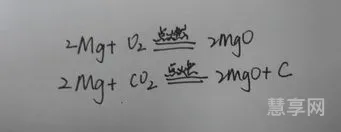 2Mg + O₂ 点燃 2MgO
2Mg + CO₂ 点燃 2MgO + C
慧享网